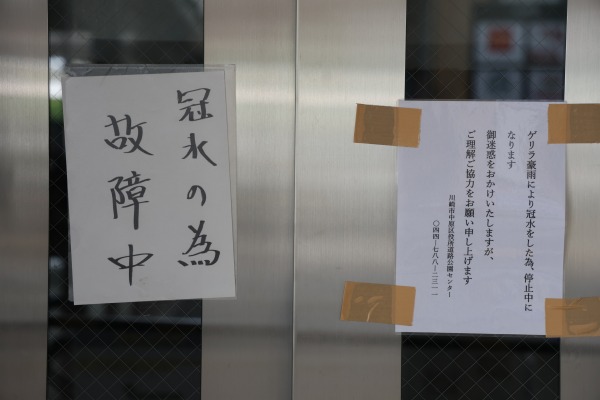 冠水の為
故障中
ゲリラ豪雨により冠水をした為、停止中に
なります
御迷惑をおかけいたしますが、
ご理解ご協力をお願い申し上げます
川崎市中原区役所道路公園センター
〇四四-七八八-二三一一